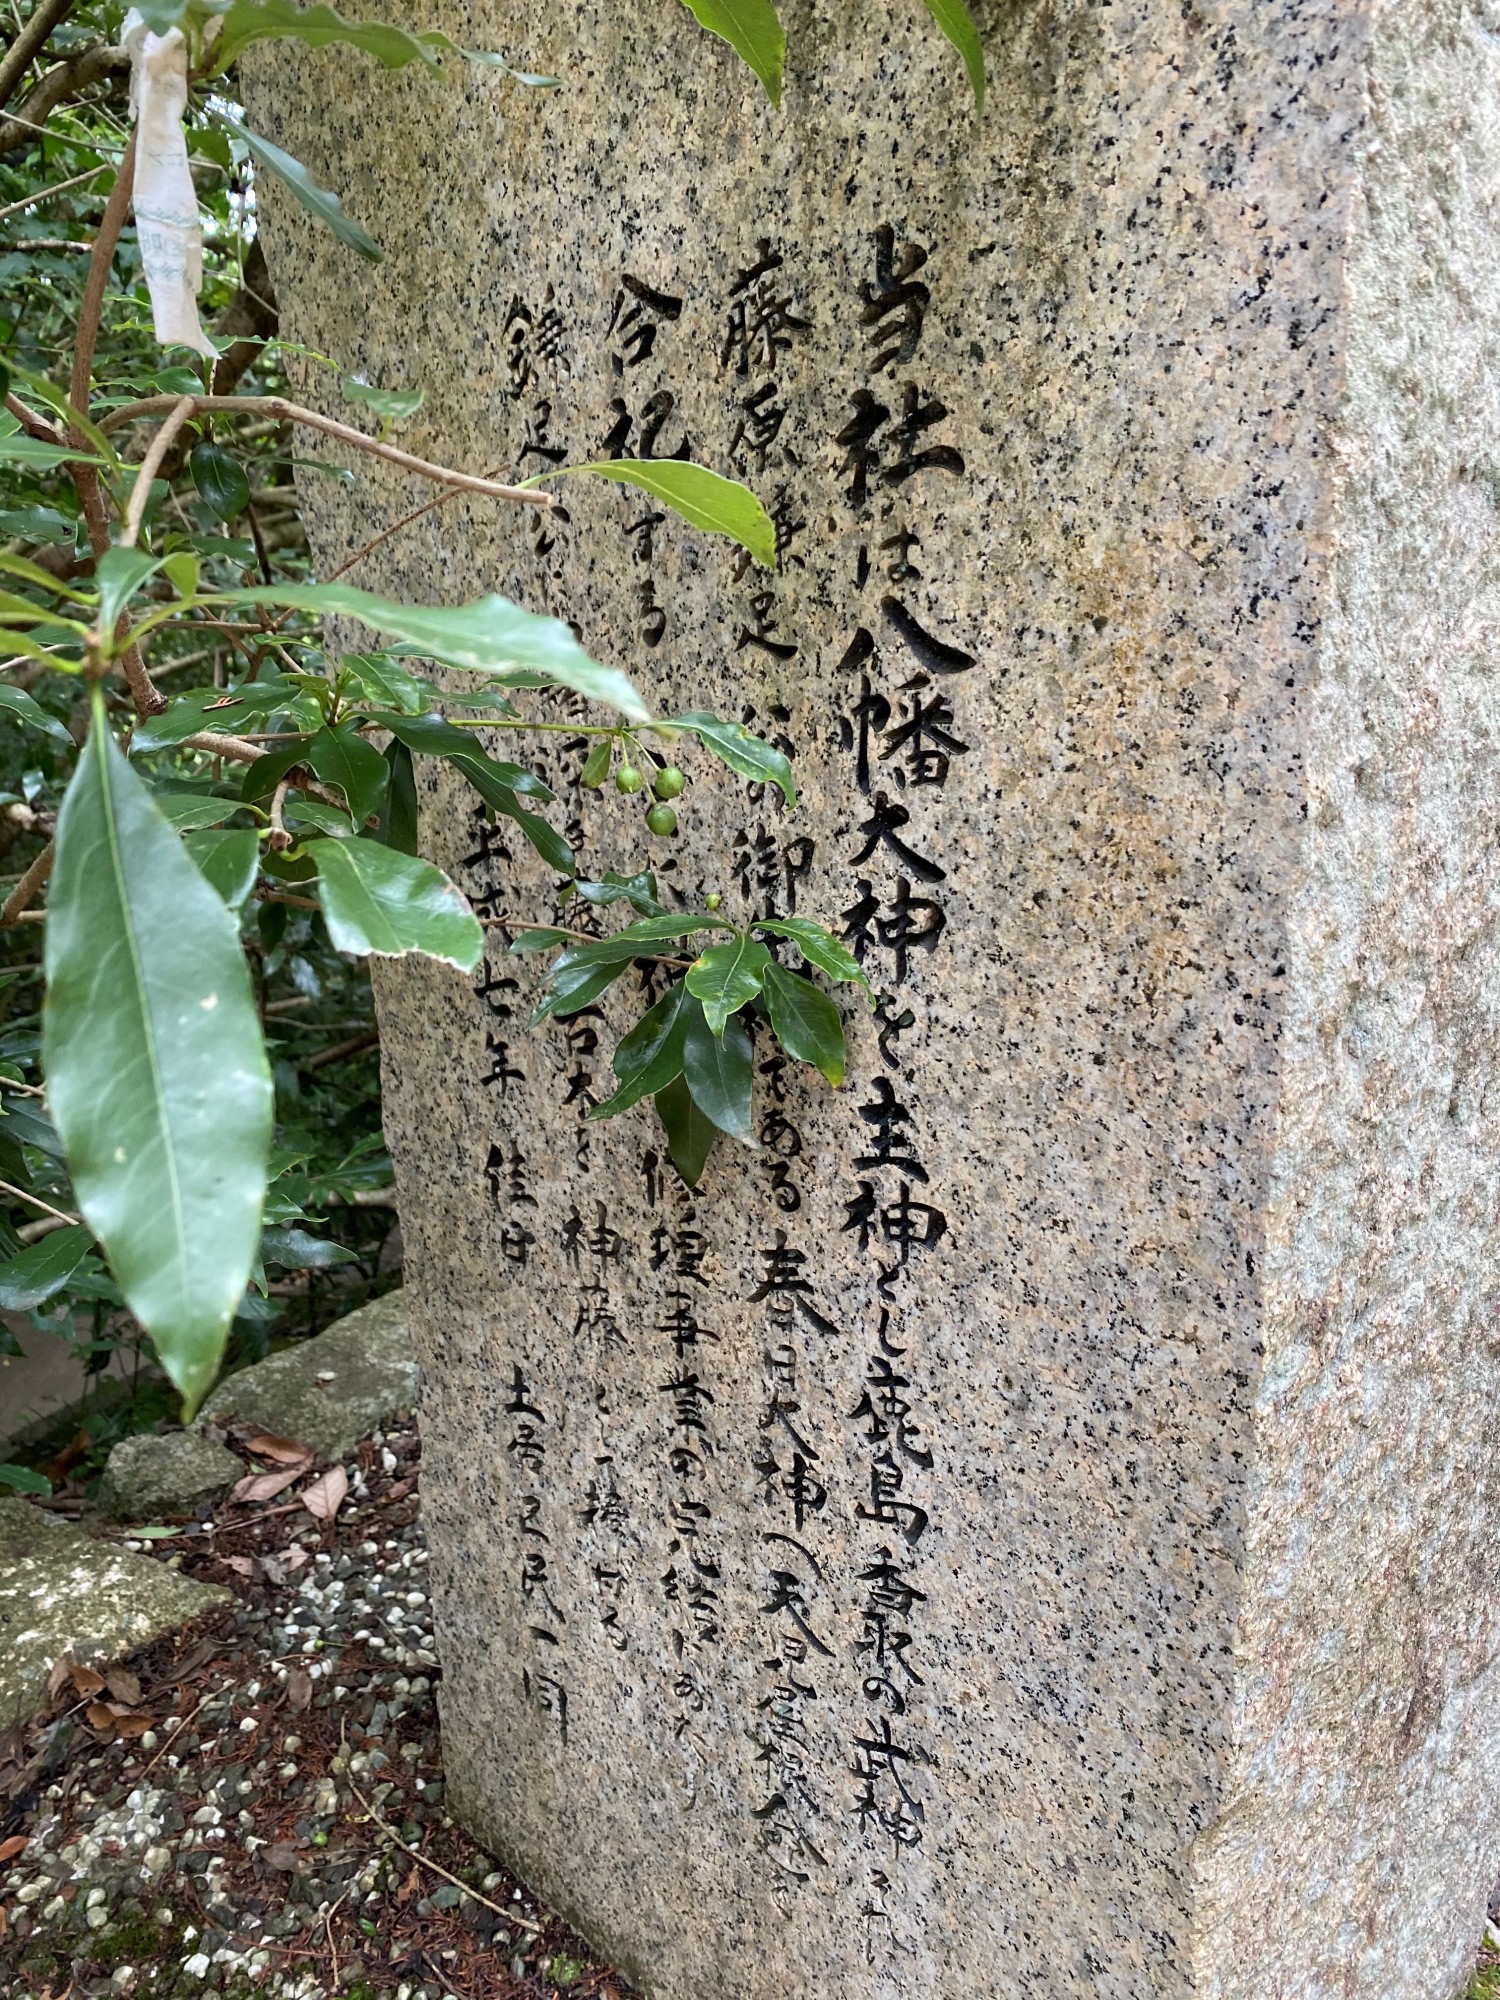 当社は八幡大神を主神とし鹿島香取の武神それに
藤原鎌足公の御である春日大神(天児屋根命)を
合祀する 修理事業の完結にあたり
鎌足公 藤古木を神藤とし捧げる
平成七年 佳日 土居区民一同